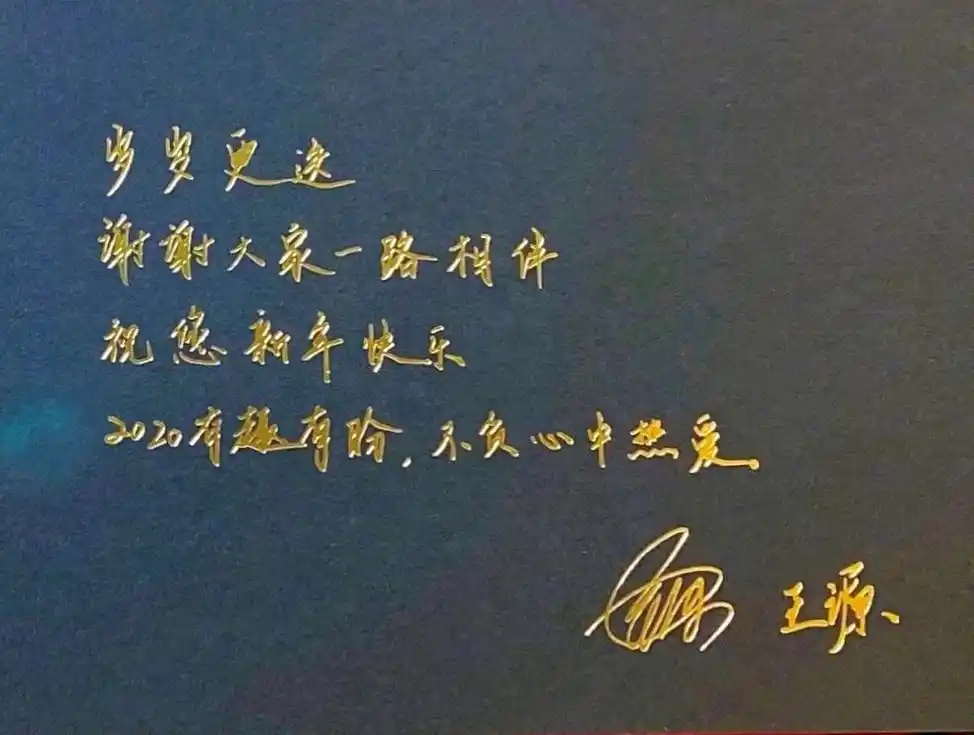 岁岁更迭
谢谢大家一路相伴
祝您新年快乐
2020有趣有盼,不负心中热爱。
王源